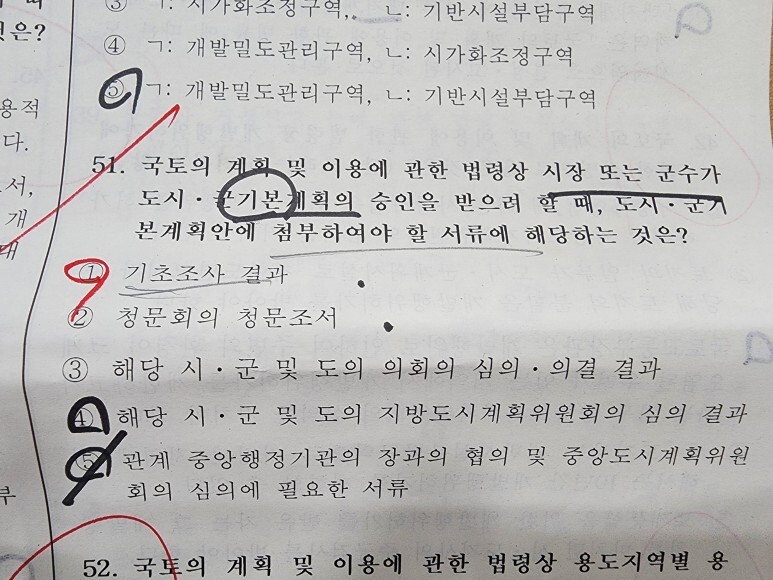 ③ ㄱ: 시가화조정구역, ㄴ: 기반시설부담구역
④ ㄱ: 개발밀도관리구역, ㄴ: 시가화조정구역
⑤ ㄱ: 개발밀도관리구역, ㄴ: 기반시설부담구역
51. 국토의 계획 및 이용에 관한 법령상 시장 또는 군수가
도시·군기본계획의 승인을 받으려 할 때, 도시·군기
본계획안에 첨부하여야 할 서류에 해당하는 것은?
① 기초조사 결과
② 청문회의 청문조서
③ 해당 시·군 및 도의 의회의 심의·의결 결과
④ 해당 시·군 및 도의 지방도시계획위원회의 심의 결과
⑤ 관계 중앙행정기관의 장과의 협의 및 중앙도시계획위원
회의 심의에 필요한 서류
52. 국토의 계획 및 이용에 관한 법령상 용도지역별 용
것은?
용적
다.
서,
개
대
부